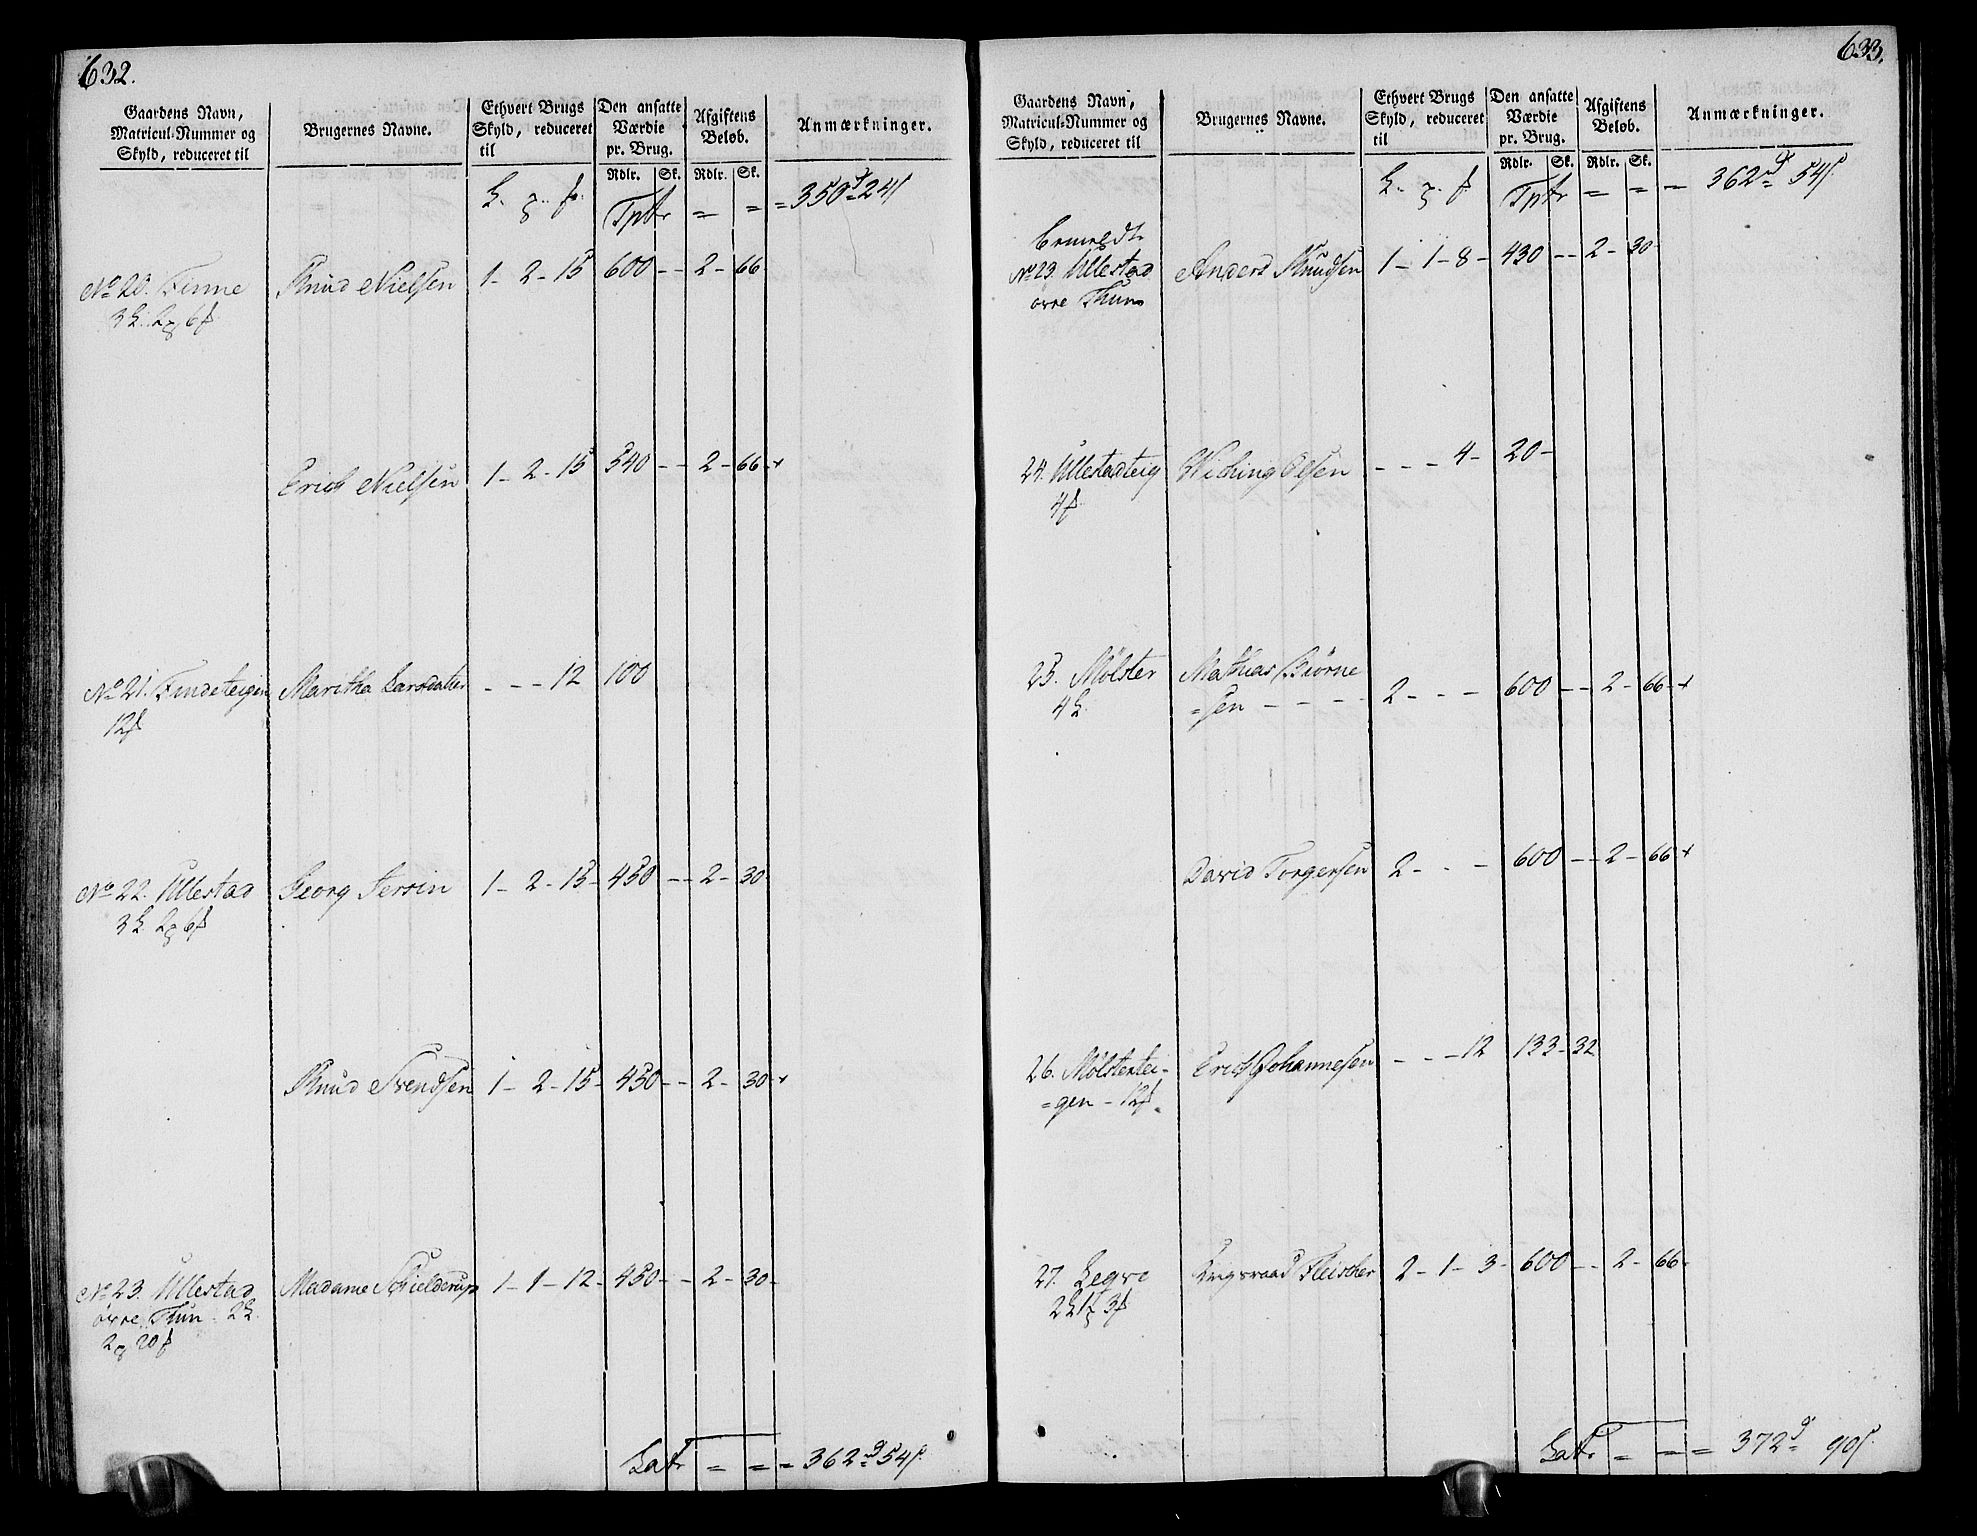 632.
Gaardens Navn,
Matricul-Nummer og
Skyld, reduceret til
Brugernes Navne.
Ethvert Brugs
Skyld, reduceret
til
Den ansatte
Værdie
pr. Brug.
Afgiftens
Beløb.
Anmærkninger.
Rdlr. Sk. Rdlr. Sk.
Tptr = = = 350 24
No 20. Finne Knud Nielsen 1 - 2 - 15 600 - - 2 - 66
Erich Nielsen 1 - 2 - 15 540 - - 2 - 66 +
No 21. Findeteigen Maritha Larsdatter - - - 12 100
12
No 22. Ullestad Georg 1 - 2 - 15 - 450 - - 2 - 30
Knud Svendsen 1 - 2 - 15 - 450 - - 2 - 30 +
No 23. Ullestad Madame Schielderup 1 - 1 - 12 - 450 - - 2 - 30 -
øvre Thun. 2
2 20
Latr = = = 362 54
633.
Gaardens Navn,
Matricul-Nummer og
Skyld, reduceret til
Brugernes Navne.
Ethvert Brugs
Skyld, reduceret
til
Den ansatte
Værdie
pr. Brug.
Afgiftens
Beløb.
Anmærkninger.
Rdlr. Sk. Rdlr. Sk.
Tptr = = = 362 54
bemeldte
No 23. Ullestad Anders Knudsen 1 - 1 - 8 - 430 - - 2 - 30
øvre Thun
24. Ullestadteig Olsen - - - 4 - 20 -
4
25. Mølster Mathias Biørne
4 =sen - - - - 2 - - - 600 - - 2 - 66 - +
David Torgersen 2 - - - 600 - - 2 - 66 +
26. Mølstertei- Erich Johannesen - - - 12 133 - 32
=gen - 12
27. Legre Krigsraad Fleischer 2 - 1 - 3 - 600 - - 2 - 66 -
Latr = = = 372 90